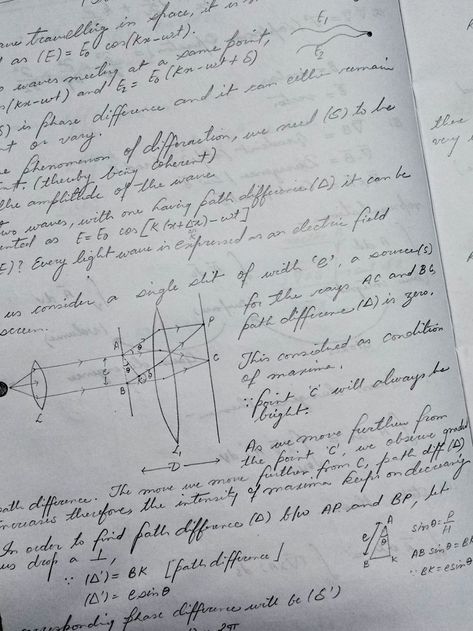 wave travelling in space, it is
d as (E) = E₀ cos(kx-ωt).
o waves meeting at a same point,
s(kx-ωt) and E₂ = E₀ (kx-ωt+δ)
E₁
E₂
δ) is phase difference and it can either remain
nt or vary.
e phenomenon of diffraction, we need (δ) to be
nt. (thereby being coherent)
the amplitude of the wave
two waves, with one having path difference (Δ) it can be
ented as E = E₀ cos [k(x+Δx)-ωt]
E)? Every light wave is expressed as an electric field
us consider a single slit of width 'e', a source (s)
screen.
for the rays AC and BC,
path difference (Δ) is zero.
This considered as condition
of maxima.
∵ point 'C' will always be
bright.
A
B
θ
θ
e
K
P
C
L
L₁
D
As we move further from
the point 'C', we observe
path difference. The move we move further from C, path diff (Δ)
increases therefores the intensity of maxima keeps on decreasing
In order to find path difference (Δ) b/w AP and BP, let
us drop a ⊥,
∵ (Δ') = BK [path difference]
(Δ') = e sinθ
A
e
θ
B
K
sinθ = P/H
AB sinθ = BK
∴ BK = e sinθ
corresponding phase difference with be (δ')
2π
there
very